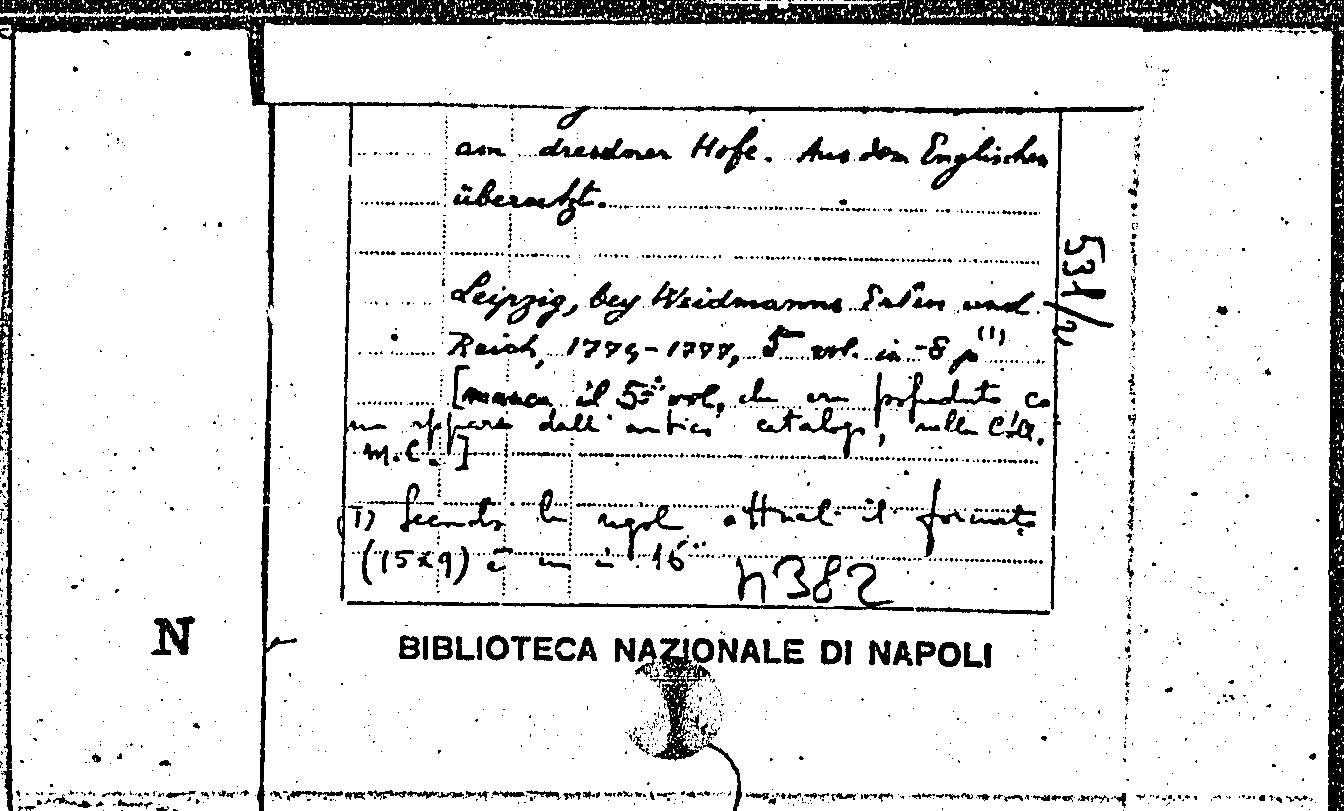 am dresdner Hofe. Aus dem Englischen
übersetzt.
Leipzig, bey Weidmanns Erben und
Reich, 1775-1777, 5 vol. in -8 p(1)
[manca il 5º vol, che era posseduto co
me appare dall'antico catalogo, nella Coll.
M.C.]
(1) Secondo le regole attuali il formato
(15x9) è un in 16º
n382
531/2
N
BIBLIOTECA NAZIONALE DI NAPOLI